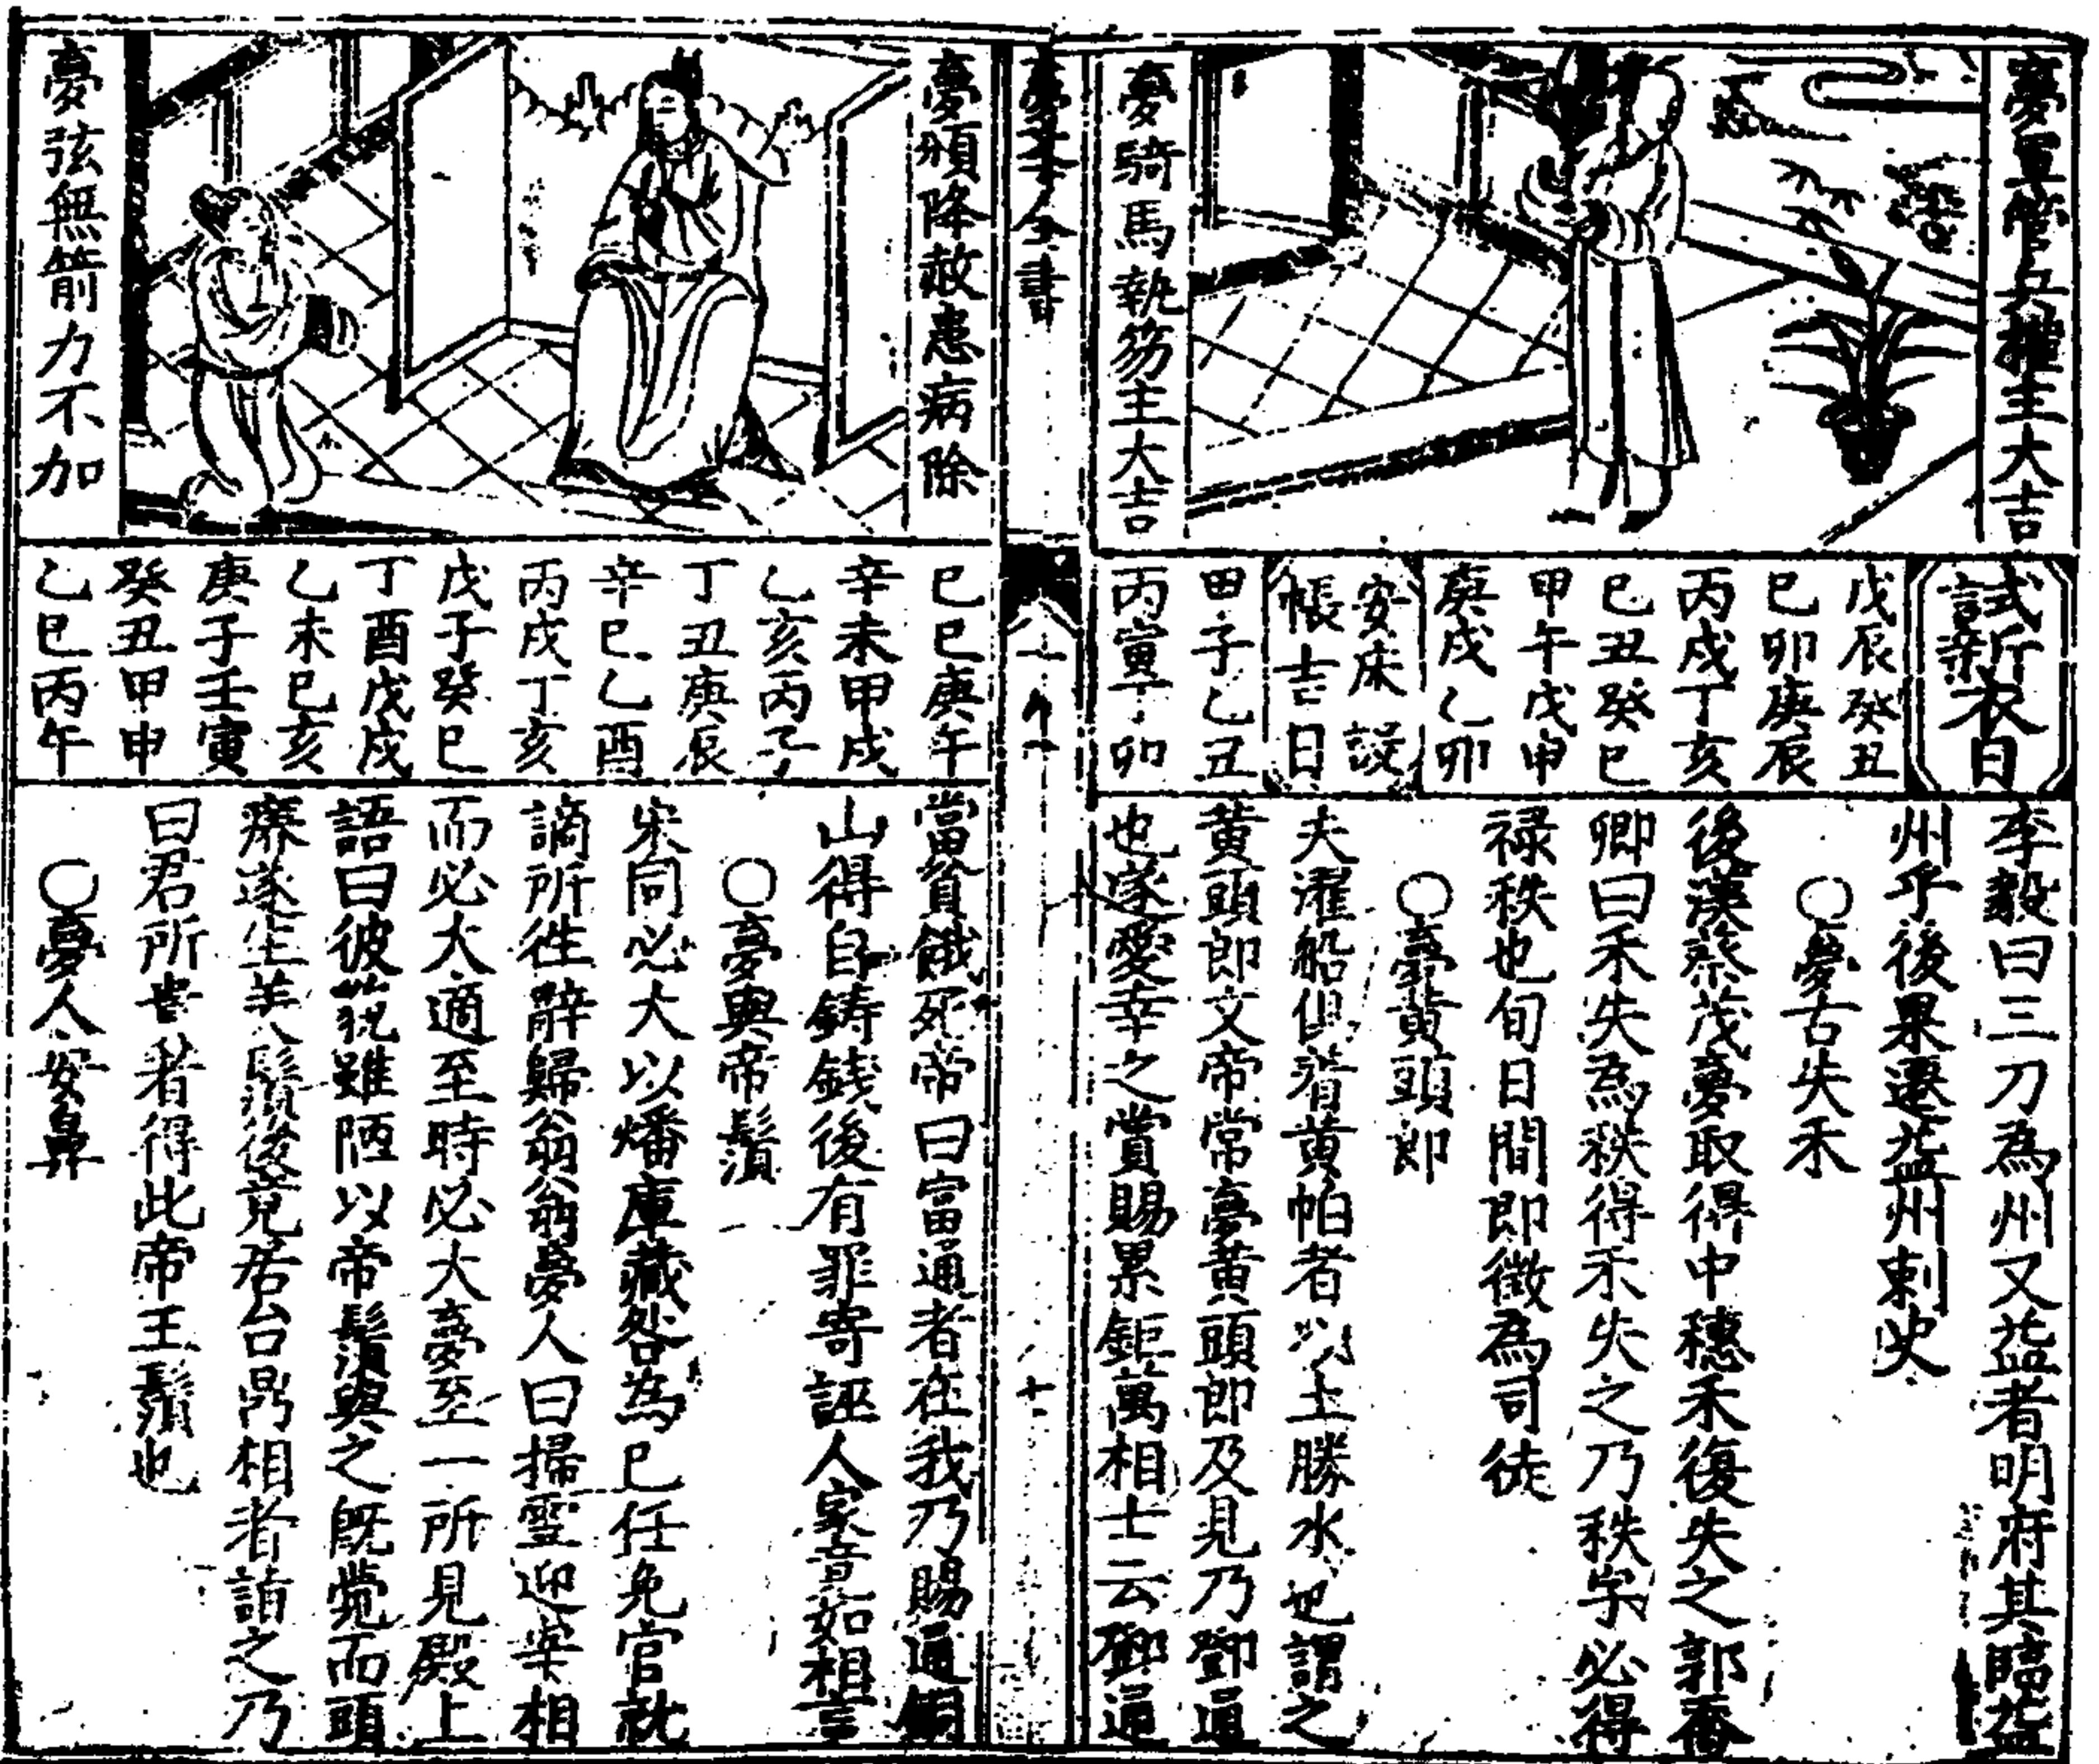 夣軍管兵權主大吉
夣騎馬執笏主大吉
試新衣日
戊辰癸丑
巳卯庚辰
丙戍丁亥
巳丑癸巳
甲午戊申
庚戍乙卯
安床設
帳吉日
甲子乙丑
丙寅丁卯
李毅曰三刀為州又益者明府其臨益
州乎後果遷益州刺史
〇夢古失禾
後漢蔡茂夣取得中穗禾復失之郭喬
卿曰禾失為秩得禾失之乃秩字必得
禄秩也旬日間即徵為司徒
〇夣黄頭郎
夫濯船俱着黄帕者以土勝水也謂之
黄頭郎文帝常夣黄頭郎及見乃鄧通
也寵愛幸之賞賜累鉅萬相士云鄧通
全書
十一
夣頒降赦患病除
夣弦無箭力不加
巳巳庚午
辛未甲戍
乙亥丙子
丁丑庚辰
辛巳乙酉
丙戍丁亥
戊子癸巳
丁酉戊戍
乙未巳亥
庚子壬寅
癸丑甲申
乙巳丙午
當貧餓死帝曰富通者在我乃賜通銅
山得自鋳錢後有罪寄誣人家竟如相言
〇夣與帝鬚
宋周必大以燔庫藏咎為巳任免官就
謫所徃辭歸翁翁夢人曰掃雪迎宰相
而必大適至時必大夣至一所見殿上
語曰彼㒵雖陋以帝鬚與之既覺而頭
癢遂生美鬚後竟居台鼎相者請之乃
曰君所貴者得此帝王鬚也
〇夣人安鼻